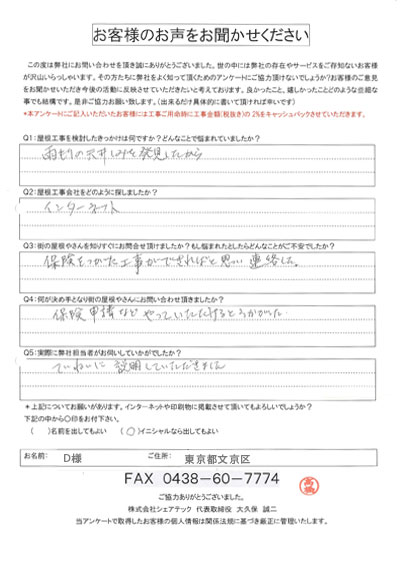 お客様のお声をお聞かせください
この度は弊社にお問い合わせ頂き誠にありがとうございました。世の中には弊社の存在やサービスをご存知ないお客様
が沢山いらっしゃいます。その方たちに弊社をよく知って頂くためのアンケートにご協力頂けないでしょうか？お客様のご意見
をお聞かせいただき今後の活動に反映させていただきたいと考えております。良かったこと、嬉しかったことどのような些細な
事でも結構です。是非ご協力お願い致します。（出来るだけ具体的に書いて頂ければ幸いです）
＊本アンケートにご記入いただいたお客様には工事ご用命時に工事金額(税抜き)の 2%をキャッシュバックさせていただきます。
Q1:屋根工事を検討したきっかけは何ですか？どんなことで悩まれていましたか？
雨もりの天井しみを発見したから
Q2:屋根工事会社をどのように探しましたか？
インターネット
Q3:街の屋根やさんを知りすぐにお問合せ頂けましたか？もし悩まれたとしたらどんなことがご不安でしたか？
保険をつかった工事ができればと思い連絡した。
Q4:何が決め手となり街の屋根やさんにお問い合わせ頂きましたか？
保険申請など やっていただけるとうかがった
Q5:実際に弊社担当者がお伺いしていかがでしたか？
ていねいに 説明していただきました
＊上記についてお願いがあります。インターネットや印刷物に掲載させて頂いてもよろしいでしょうか？
下記の中から〇印をお付下さい。
（　）名前を出してもよい　（〇）イニシャルなら出してもよい
お名前: D様 ご住所: 東京都文京区
FAX 0438-60-7774
ご協力ありがとうございました。
株式会社シェアテック 代表取締役 大久保 誠二
当アンケートで取得したお客様の個人情報は関係法規に基づき厳正に管理いたします。